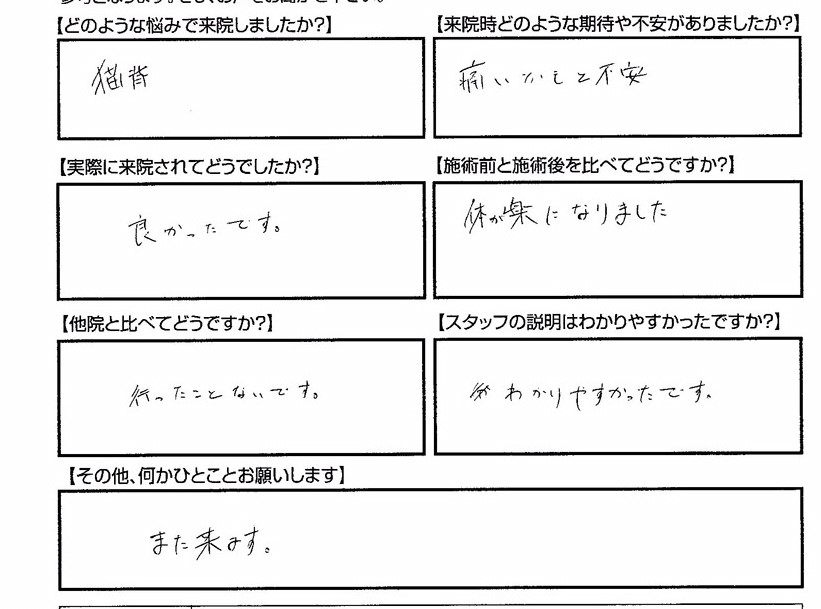 【どのような悩みで来院しましたか?】
猫背
【来院時どのような期待や不安がありましたか?】
痛いかもと不安
【実際に来院されてどうでしたか?】
良かったです。
【施術前と施術後を比べてどうですか?】
体が楽になりました
【他院と比べてどうですか?】
行ったことないです。
【スタッフの説明はわかりやすかったですか?】
わかりやすかったです。
【その他、何かひとことお願いします】
また来ます。